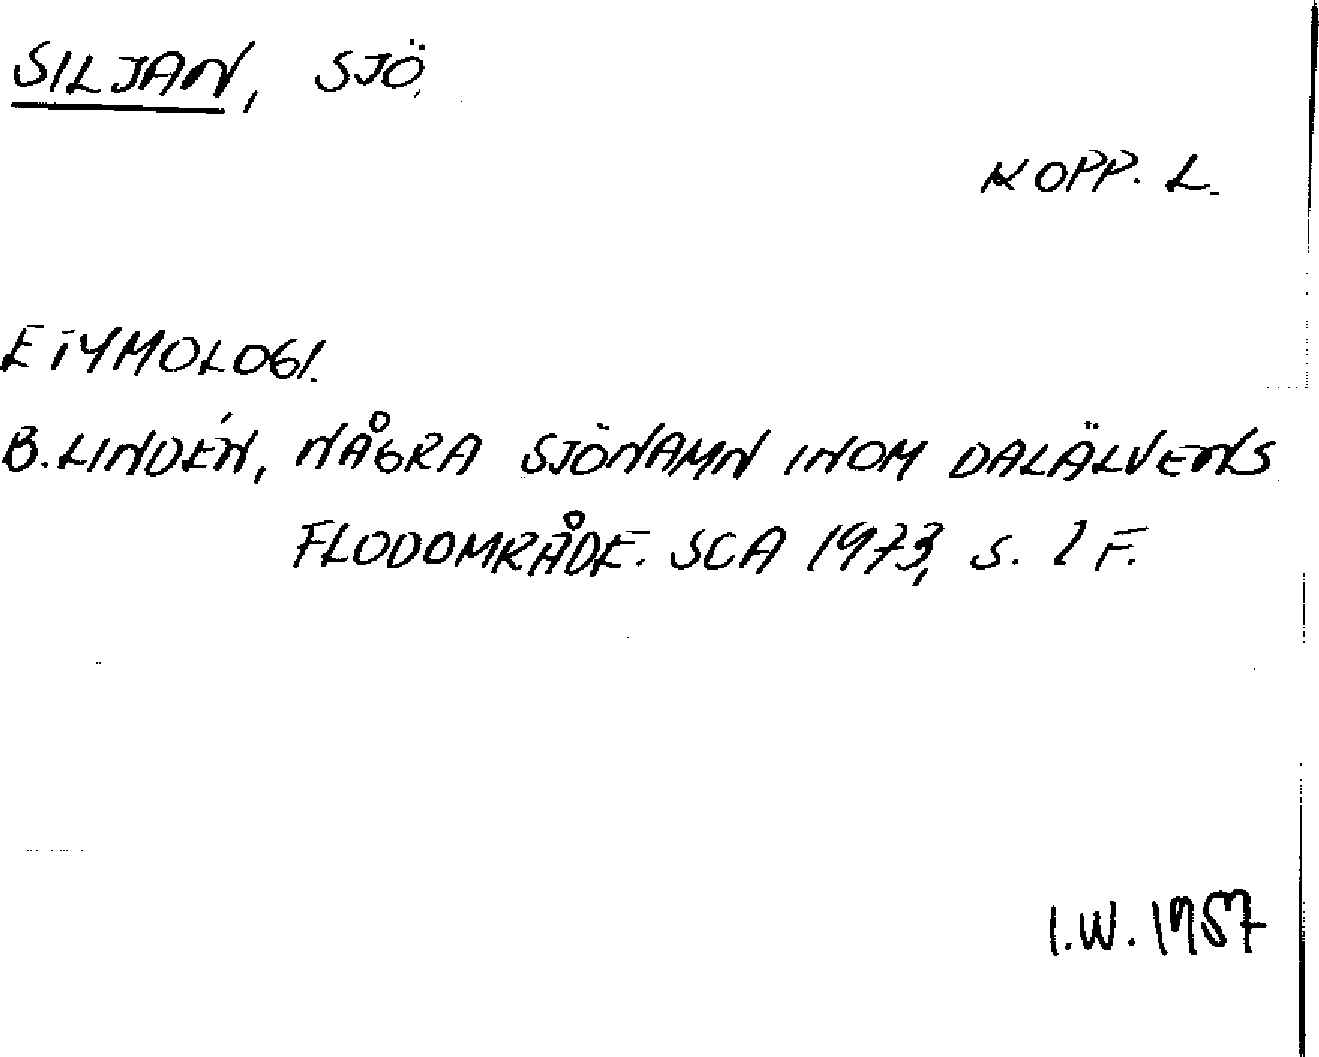 SILJAN, SJÖ.
KOPP. L.
ETYMOLOGI.
B. LINDÉN, NÅGRA SJÖNAMN INOM DALÄLVENS
FLODOMRÅDE. SCA 1973, S. 2 F.
I.W. 1987